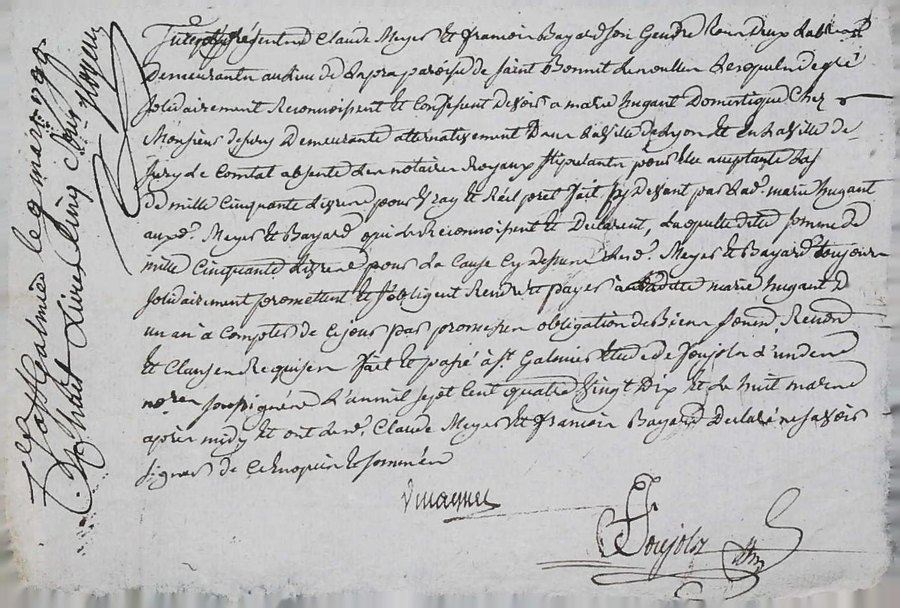 Claude Meyer et François Bayard son Gendre
Demeurants au lieu de paroisse de Saint Bonnet
solidairement Reconnoissent et Confessent devoir a marie hugant Domestique Chez
Monsieur de Jury Demeurante alternativement Dans la ville de Lyon et en la ville de
Jury le Comtat absente les notaires Royaux stipulants pour elle acceptante
de mille Cinquante livres pour vray et Réel pret fait cy devant par lad. marie hugant
auxd. Meyer et Bayard qui le Reconnoissent et Declarent, Laquelle dite somme de
mille Cinquante livres pour la Cause cy dessus lesd. Meyer et Bayard toujours
solidairement promettent et s'obligent Rendre et payer a Ladite marie hugant d
un an a Compter de ce jour par promesses obligation de Biens
et Clauses Requises fait et passé à St. Galmier Etude de Soujols l'un des
nores soussignés L'an mil sept Cent quatre vingt Dix et le huit mars
après midy et ont lesd. Claude Meyer et François Bayard Declaré ne savoir
signer de ce Enquis et sommés
Soujols
a St Galmier le 9 mars 1790
livres Cinq